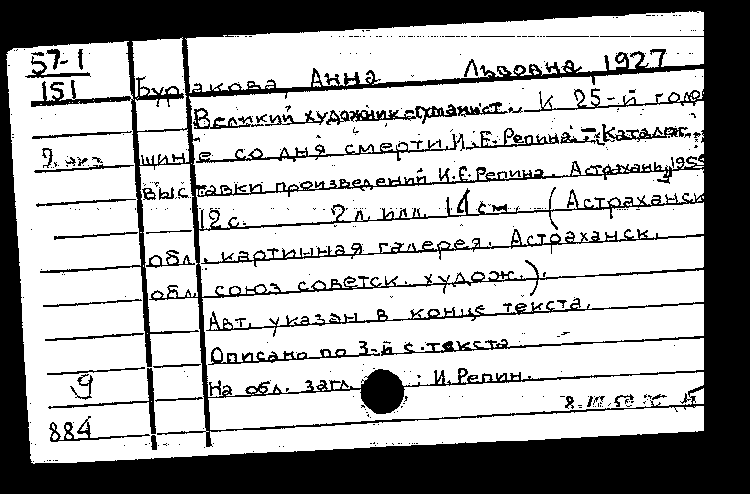 57-1
151
Бурлакова, Анна Львовна 1927
Великий художник-гуманист. К 25-й годов
2 экз.
щине со дня смерти И.Е. Репина. – Каталог
выставки произведений И.Е. Репина. Астрахань, 1955
12 с. 2 л. илл. 14 см. (Астраханск.
обл. картинная галерея. Астраханск.
обл. союз советск. худож.).
Авт. указан в конце текста.
Описано по 3-й с. текста
На обл. загл.: И. Репин.
9
884